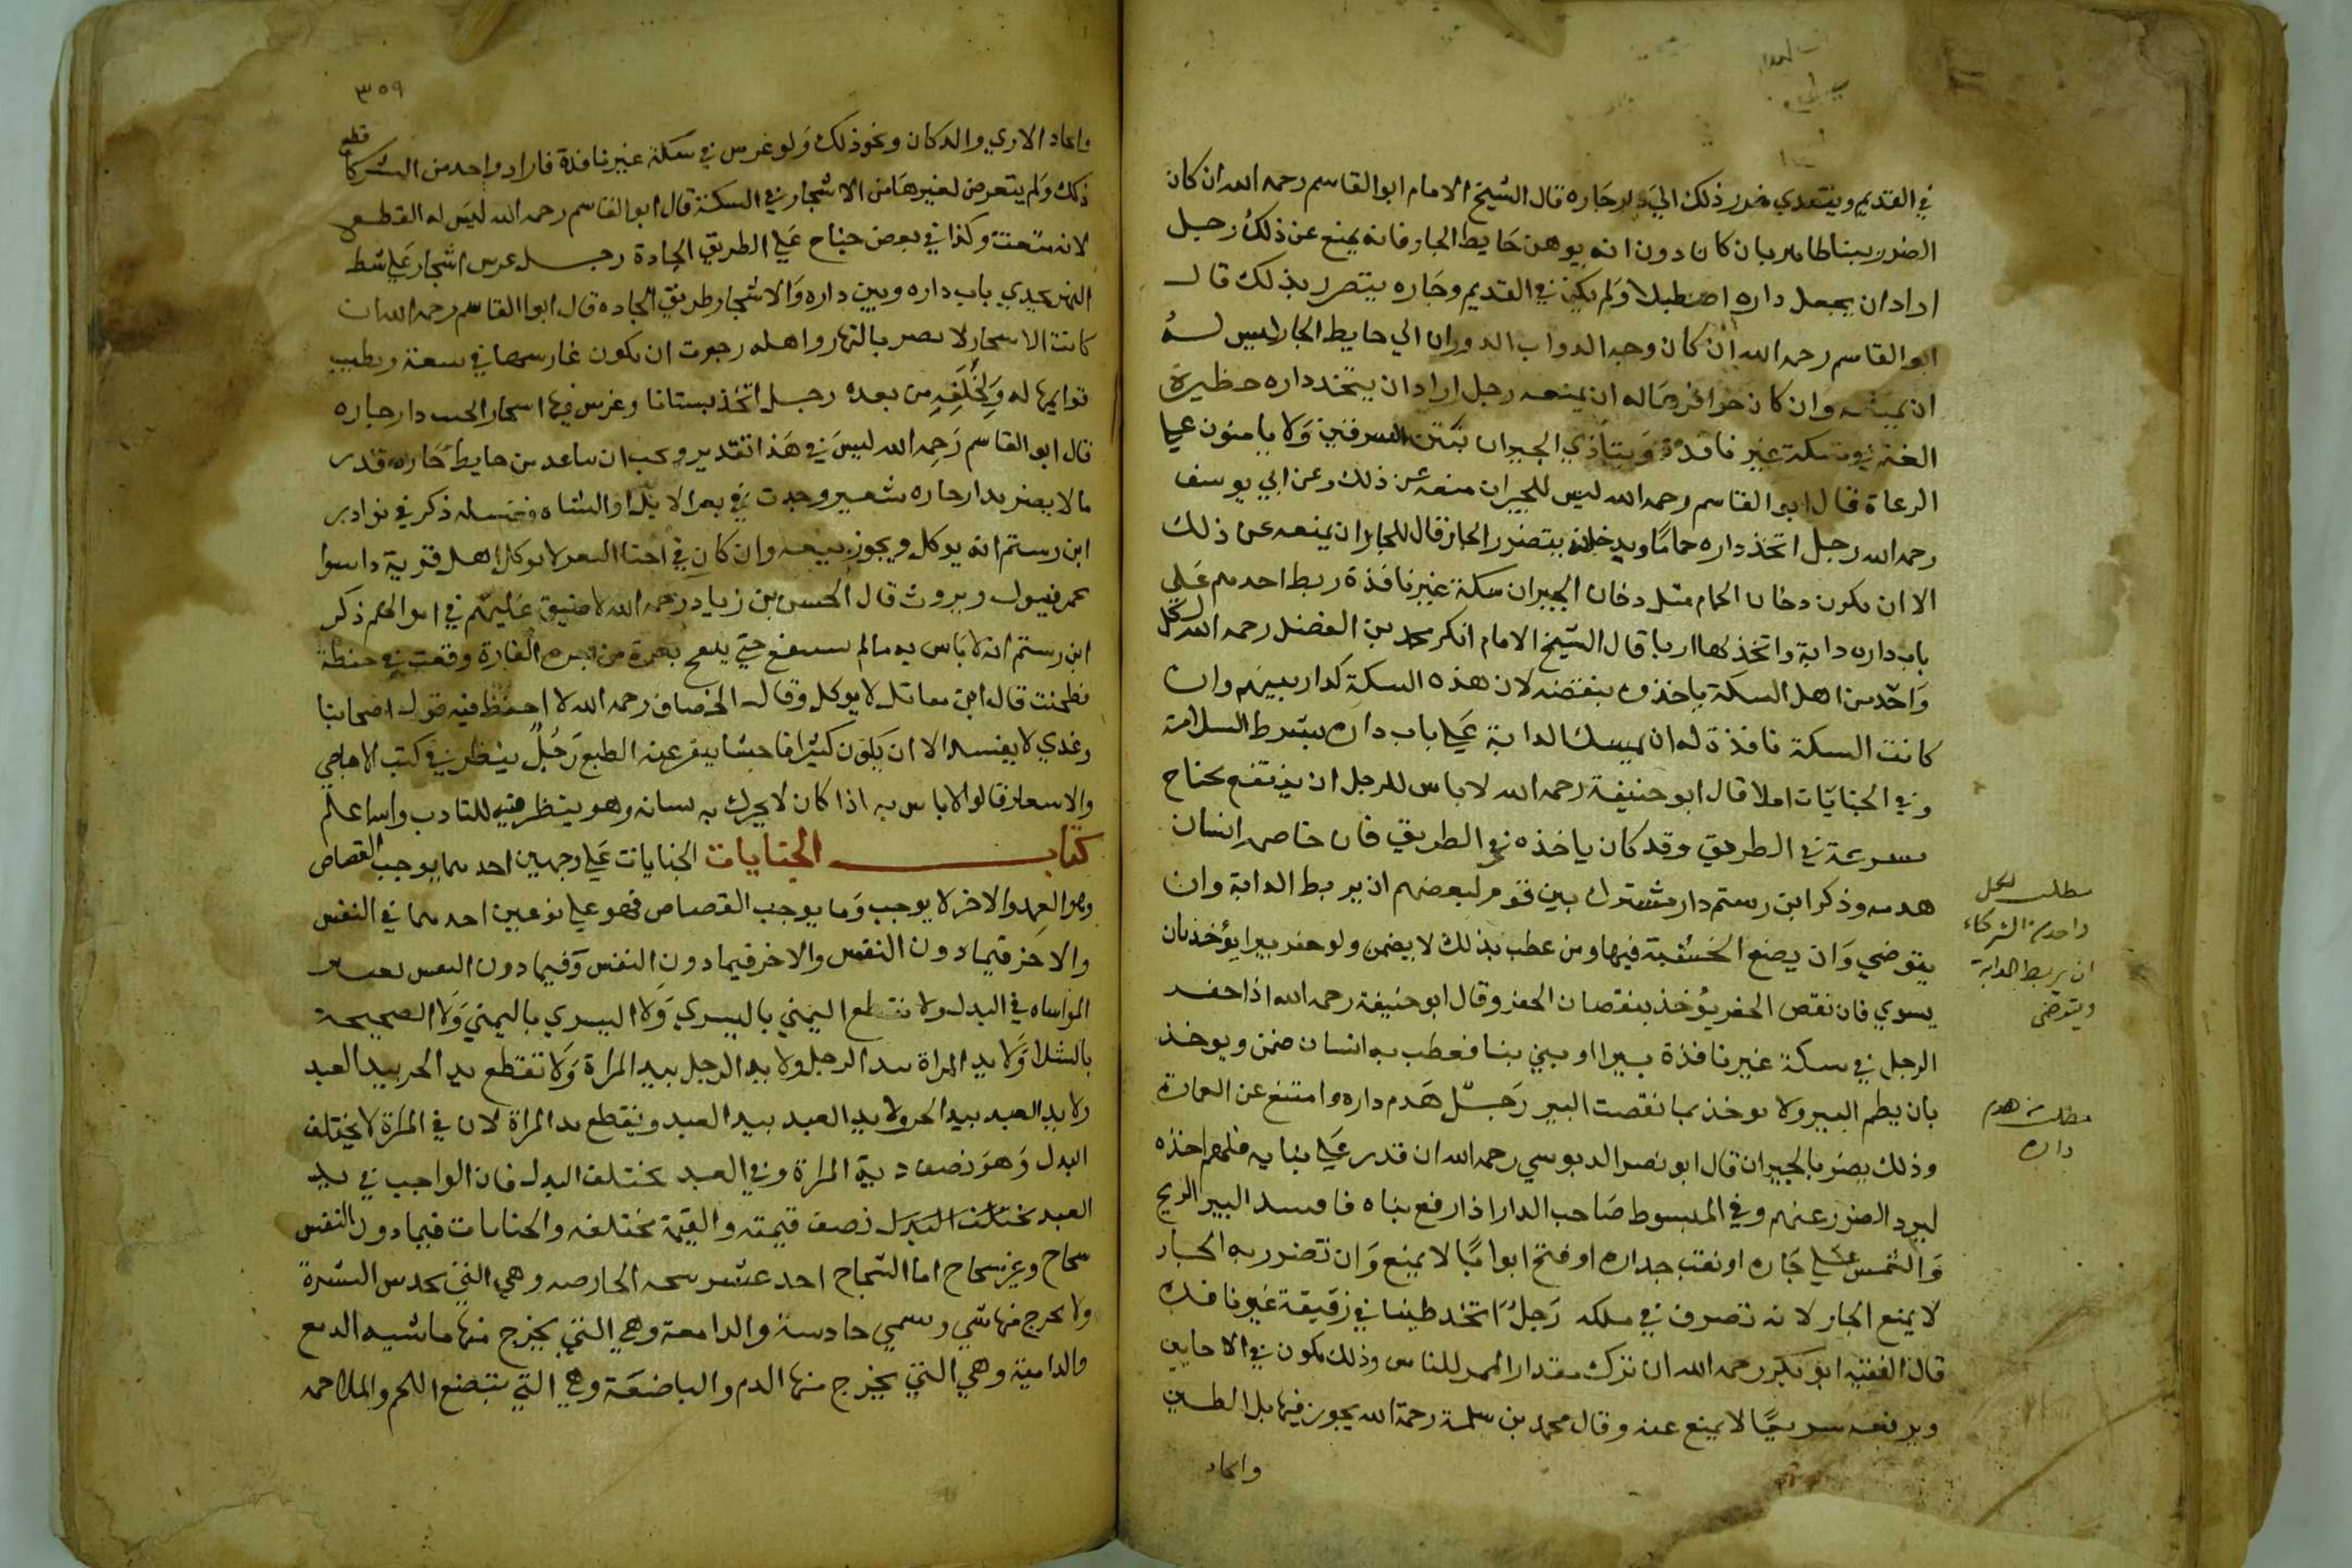 في القديم ويتعدي ضرر ذلك الي دار جاره قال الشيخ الامام ابو القاسم رحمه الله ان كان
الضرر بينا ظاهر بان كان دون انه يوهن حايط الجار فانه يمنع عن ذلك رجل
اراد ان يجعل داره اصطبلا ولم يكن في القديم وجاره يتضرر بذلك قال
ابو القاسم رحمه الله ان كان وجه الدواب الدوران الي حايط الجار ليس له
ان يمنعه وان كان حوافرها له ان يمنعه رجل اراد ان يتخذ داره حظيرة
الغنم في سكة غير نافذة ويتأذي الجيران بنتن السرقين ولا يامنون علي
الرعاة قال ابو القاسم رحمه الله ليس للجيران منعه عن ذلك وعن ابي يوسف
رحمه الله رجل اتخذ داره حماما ويدخله يتضرر الجار قال للجار ان يمنعه عن ذلك
الا ان يكون دخان الحمام مثل دخان الجيران سكة غير نافذة ربط احدهم علي
باب داره دابة واتخذ لها اريا قال الشيخ الامام ابو بكر محمد بن الفضل رحمه الله لكل
واحد من اهل السكة ياخذه بنقضه لان هذه السكة كدار بينهم وان
كانت السكة نافذة له ان يمسك الدابة علي باب داره بشرط السلامة
وفي الجنايات املا قال ابو حنيفة رحمه الله لا باس للرجل ان ينتفع بجناح
يسرعه في الطريق وقد كان ياخذه في الطريق فان خاصم انسان
هدمه وذكر ابن رستم دار مشترك بين قوم لبعضهم ان يربط الدابة وان
يتوضي وان يضع الخشبة فيها ومن عطب بذلك لا يضمن ولو حفر بيرا يؤخذ بان
يسوي فان نقص الحفر يؤخذ بنقصان الحفر وقال ابو حنيفة رحمه الله اذا حفر
الرجل في سكة غير نافذة بيرا او بني بنا فعطب به انسان ضمن ويوخذ
بان يطم البير ولا يوخذ بما نقصت البير رجل هدم داره وامتنع عن العمارة
وذلك يضر بالجيران قال ابو نصر الدبوسي رحمه الله ان قدر علي بنايه فلهم اخذه
ليرد الضرر عنهم وفي المبسوط صاحب الدار اذا رفع بناه فافسد البير الريح
والشمس علي جاره او نقب جداره او فتح ابوابا لا يمنع وان تضرر به الجار
لا يمنع الجار لانه تصرف في ملكه رجل اتخذ طينا في زقيقة غير نافذه
قال الفقيه ابو بكر رحمه الله ان ترك مقدار الممر للناس وذلك يكون في الاحايين
ويرفعه سريعا لا يمنع عنه وقال محمد بن سلمة رحمة الله يجوز فيها بل الطين
واتحاد
مطلب لكل
واحد من الشركاء
ان يربط الدابة
ويتوضي
مطلب من هدم
داره
٣٥٩
واتحاد الاري والدكان ونحو ذلك ولو غرس في سكة غير نافذة فاراد واحد من الشركا قطع
ذلك ولم يتعرض لغيرها من الاشجار في السكة قال ابو القاسم رحمه الله ليس له القطع
لانه متعنت وكذا في بعض جناح علي الطريق الجادة رجل غرس اشجار علي شط
النهر بحدي باب داره وبين داره والاشجار طريق الجاده قال ابو القاسم رحمه الله ان
كانت الاسجار لا يضر بالنهار واهله رجوت ان يكون غارسها في سعة ويطيب
ثوابها له ولخلفه من بعده رجل اتخذ بستانا وغرس فيها اسجار الجنب دار جاره
قال ابو القاسم رحمه الله ليس في هذا تقدير ويجب ان يباعد من حايط جاره قدر
ما لا يضر بدار جاره شعير وجدت في بعر الابل او الشاه فغسله ذكر في نوادر
ابن رستم انه يوكل ويجوز بيعه وان كان في اخثا البقر لا يوكل اهل قرية داسوا
بحمر فيبول ويروث قال الحسن بن زياد رحمه الله لا ضيق عليهم في امر الحكم ذكر
ابن رستم انه لا باس به مالم حتي بعرة من بعر الفارة وقعت في حنطة
فطحنت قال ابن مقاتل لا يوكل وقال الخصاف رحمه الله لا احفظ فيه قول اصحابنا
وعندي لا يفسد الا ان يكون كثيرا فاحشا ينفر عنه الطبع رجل ينظر في كتب الاهاجي
والاسعار قالوا لا باس به اذا كان لا يحرك به لسانه وهو ينظر فيه للتادب والله اعلم
كتاب الجنايات الجنايات علي وجهين احدهما يوجب القصاص
وهو العمد والاخر لا يوجب وما يوجب القصاص فهو علي نوعين احدهما في النفس
والاخر فيما دون النفس والاخر فيما دون النفس وفيما دون النفس يعتبر
المواساه في البدل ولا تقطع اليمني باليسري ولا اليسري باليمني ولا الصحيحة
بالشلا ولا يد المراة بيد الرجل ولا يد الرجل بيد المراة ولا تقطع يد الحر بيد العبد
ولا يد العبد بيد الحر ولا يد العبد بيد العبد ويقطع يد المراة لان في المراة لا يختلف
البدل وهو نصف دية المراة وفي العبد يختلف البدل فان الواجب في يد
العبد يختلف البدل نصف قيمته والقيمة مختلفه والجنايات فيما دون النفس
شجاج وغير شجاج اما الشجاج احد عشر شجه الخارصه وهي التي تخدش البشرة
ولا يخرج منها شي وسمي حادسة والدامعة وهي التي يخرج منها ما شبه الدمع
والدامية وهي التي يخرج منها الدم والباضعة وهي التي تبضع اللحم والملاحمه